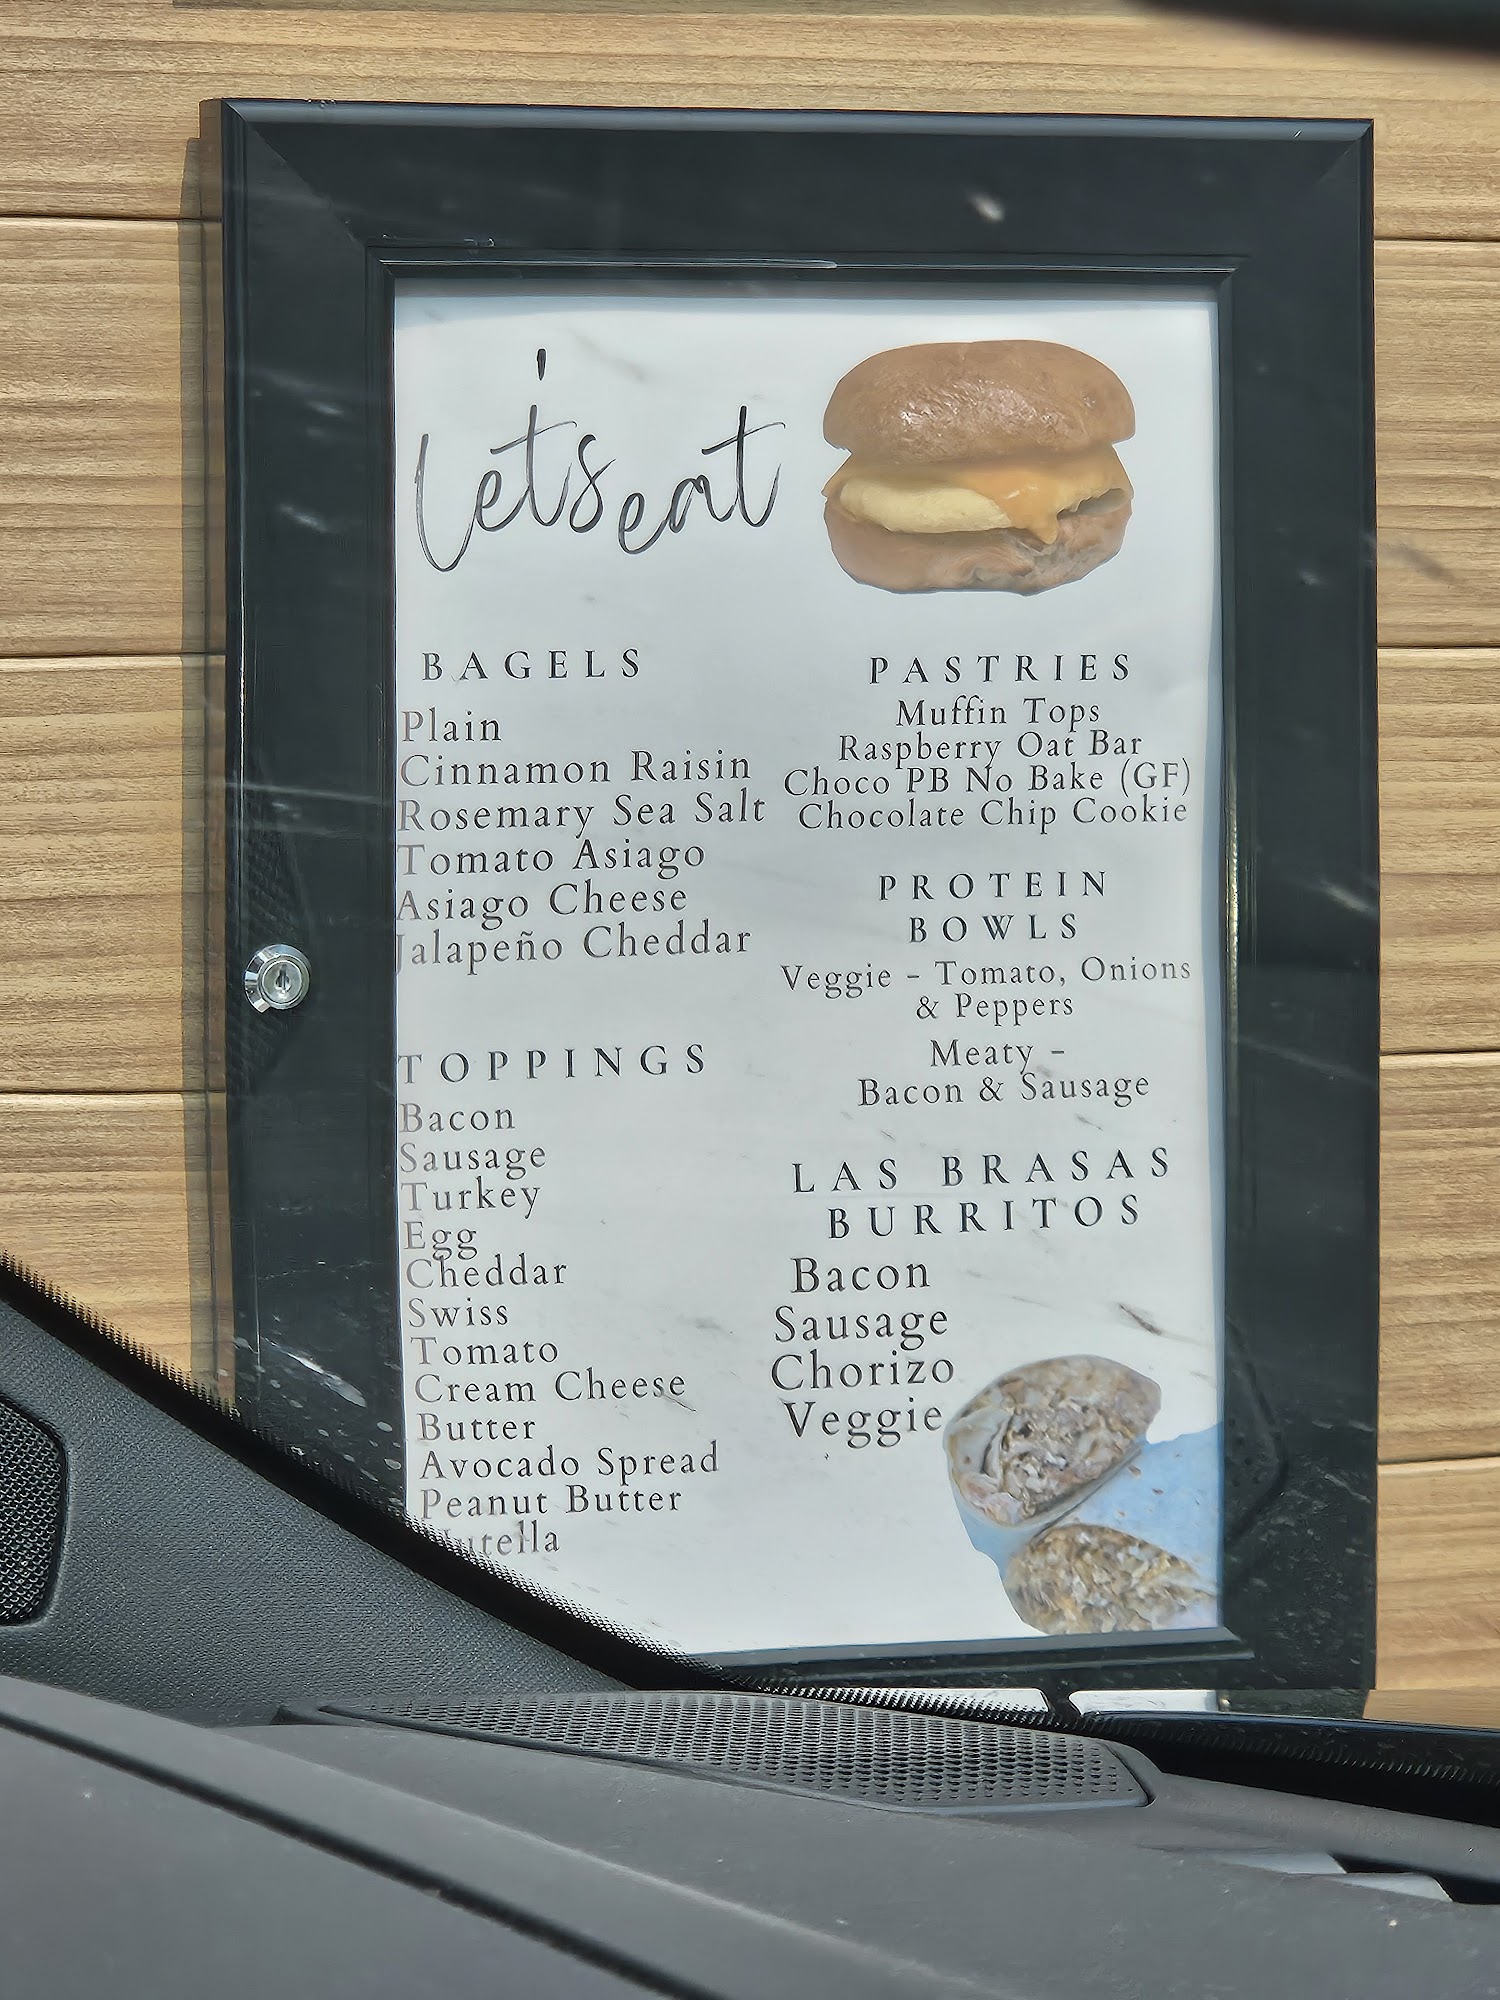 let's eat
BAGELS
Plain
Cinnamon Raisin
Rosemary Sea Salt
Tomato Asiago
Asiago Cheese
Jalapeño Cheddar
TOPPINGS
Bacon
Sausage
Turkey
Egg
Cheddar
Swiss
Tomato
Cream Cheese
Butter
Avocado Spread
Peanut Butter
Nutella
PASTRIES
Muffin Tops
Raspberry Oat Bar
Choco PB No Bake (GF)
Chocolate Chip Cookie
PROTEIN
BOWLS
Veggie - Tomato, Onions
& Peppers
Meaty -
Bacon & Sausage
LAS BRASAS
BURRITOS
Bacon
Sausage
Chorizo
Veggie